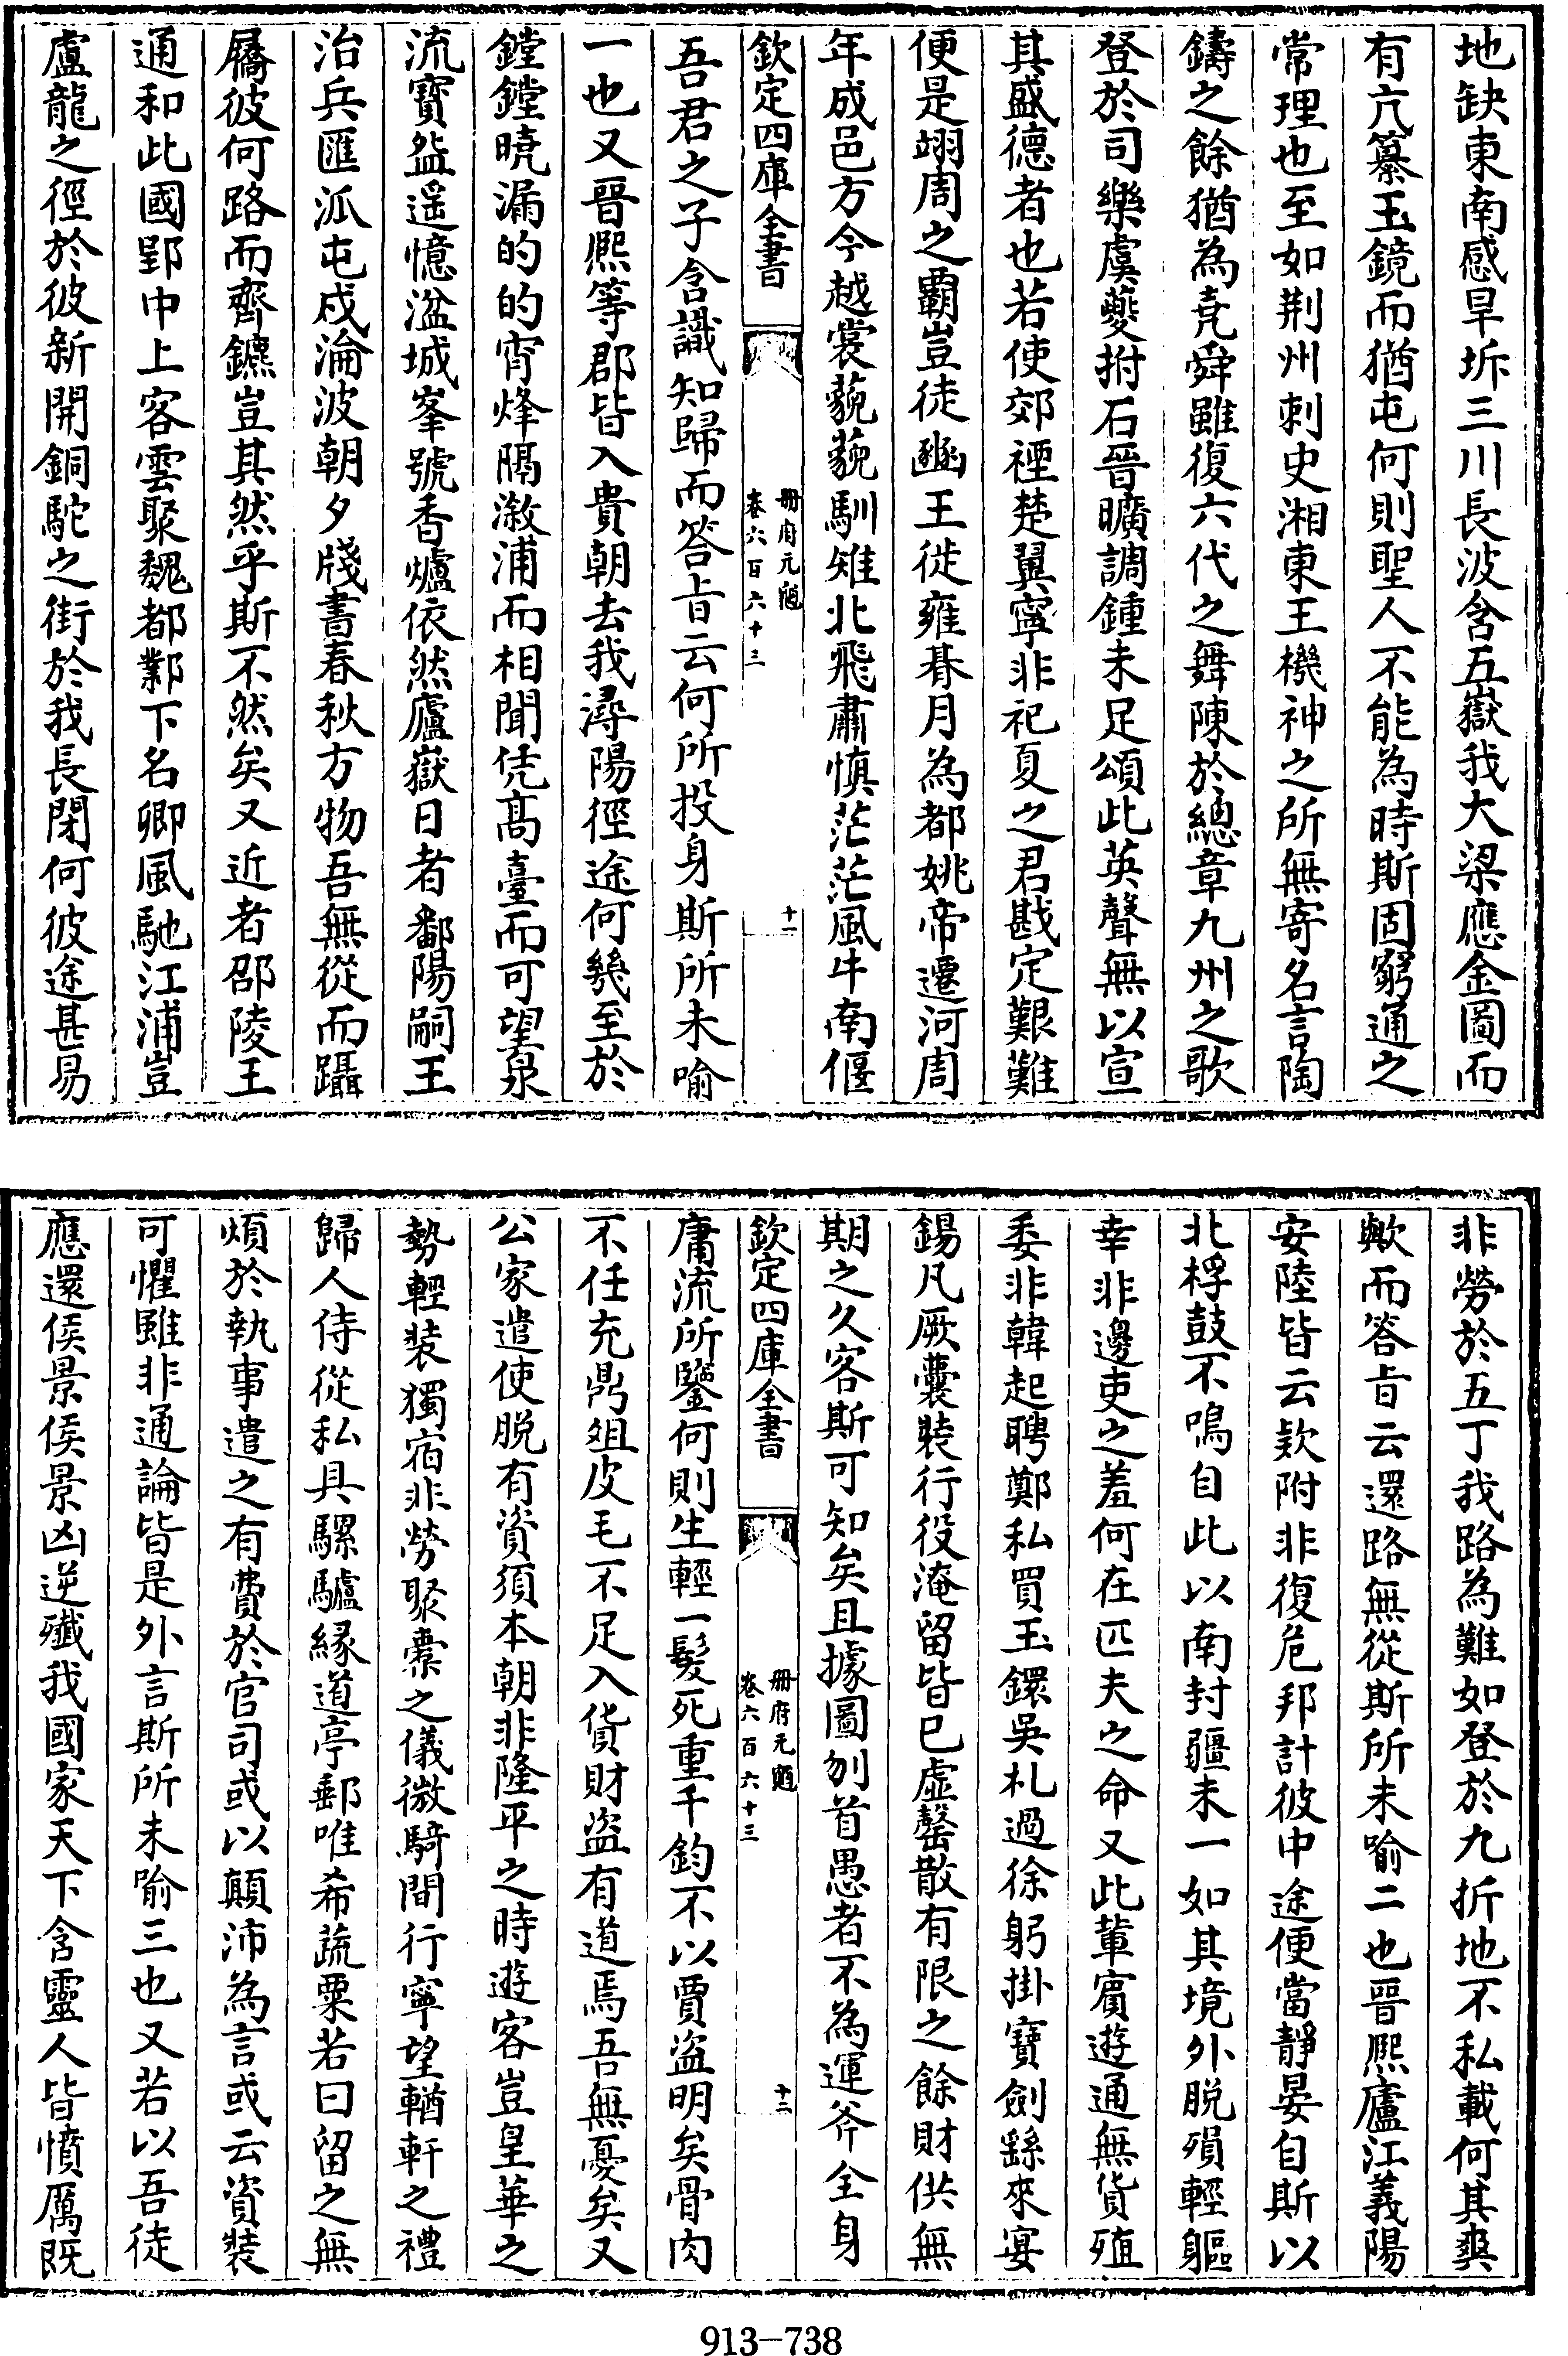 地缺東南感旱坼三川長波含五嶽我大梁應金圖而
有亢纂玉鏡而猶屯何則聖人不能為時斯固窮通之
常理也至如荆州刺史湘東王機神之所無寄名言陶
鑄之餘猶為堯舜雖復六代之舞陳於總章九州之歌
登於司樂虞夔拊石晉曠調鍾未足頌此英聲無以宣
其盛德者也若使郊禋楚翼寧非祀夏之君戡定艱難
便是翊周之霸豈徒豳王徙雍朞月為都姚帝遷河周
年成邑方今越裳藐藐馴雉北飛肅慎茫茫風牛南偃
欽定四庫全書
冊府元龜
卷六百六十三
十一
吾君之子含識知歸而答旨云何所投身斯所未喻
一也又晉熙等郡皆入貴朝去我潯陽徑途何幾至於
鏜鏜曉漏的的宵烽隔漵浦而相聞凭髙臺而可望泉
流寶盌遥憶湓城峯號香爐依然廬嶽日者鄱陽嗣王
治兵匯泒屯戍淪波朝夕牋書春秋方物吾無從而躡
屩彼何路而齊鑣豈其然乎斯不然矣又近者邵陵王
通和此國郢中上客雲聚魏都鄴下名卿風馳江浦豈
盧龍之徑於彼新開銅駝之街於我長閉何彼途甚易
非勞於五丁我路為難如登於九折地不私載何其爽
歟而答旨云還路無從斯所未喻二也晉熙廬江義陽
安陸皆云欵附非復危邦計彼中途便當靜晏自斯以
北桴鼓不鳴自此以南封疆未一如其境外脱殞輕軀
幸非邊吏之羞何在匹夫之命又此輩賔遊通無貨殖
委非韓起聘鄭私買玉鐶吳札過徐躬掛寶劍繇來宴
錫凡厥囊裝行役淹留皆已虚罄散有限之餘財供無
期之久客斯可知矣且據圖刎首愚者不為運斧全身
欽定四庫全書
冊府元龜
卷六百六十三
十二
庸流所鑒何則生輕一髮死重千鈞不以賈盜明矣骨肉
不任充鼎俎皮毛不足入貨財盜有道焉吾無憂矣又
公家遣使脱有資須本朝非隆平之時遊客豈皇華之
勢輕裝獨宿非勞聚橐之儀微騎間行寧望輶軒之禮
歸人侍從私具騾驢緣道亭郵唯希蔬粟若曰留之無
煩於執事遣之有費於官司或以顛沛為言或云資裝
可懼雖非通論皆是外言斯所未喻三也又若以吾徒
應還侯景侯景凶逆殲我國家天下含靈人皆憤厲既
913-738